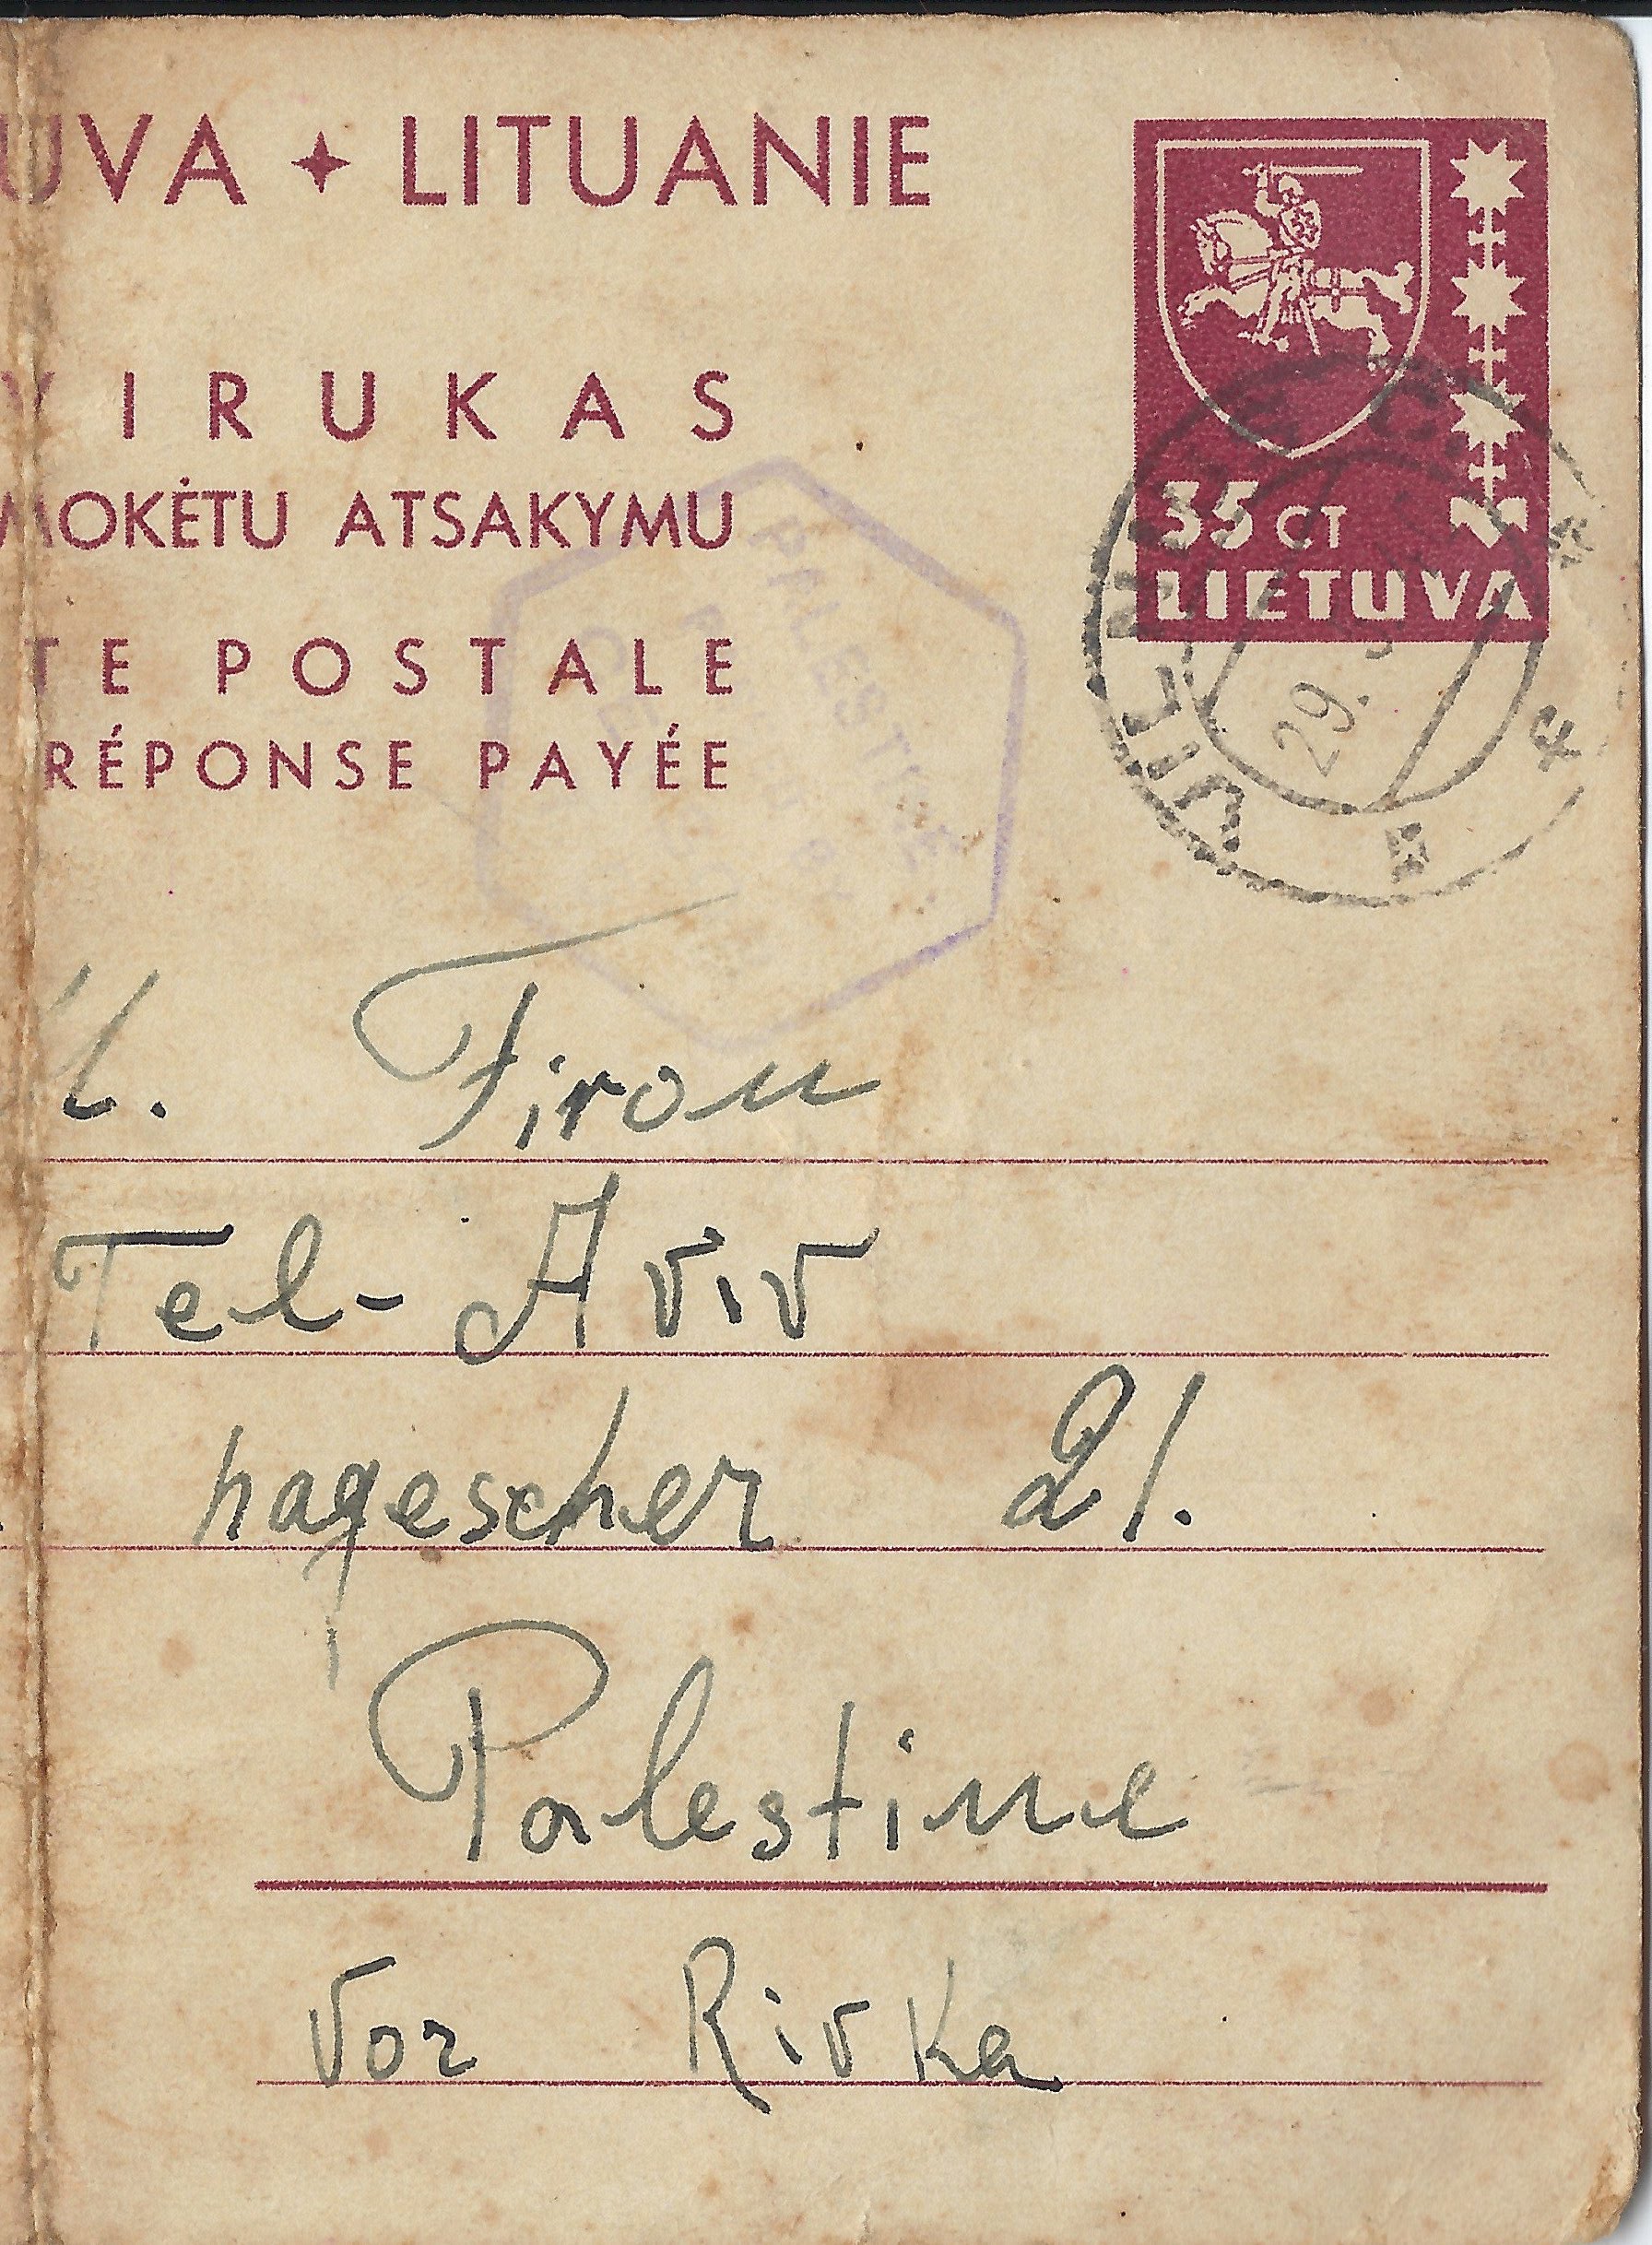 UVA ✦ LITUANIE
VIRUKAS
MOKĖTU ATSAKYMU
TE POSTALE
RÉPONSE PAYÉE
35 CT
LIETUVA
VILNIUS
29.
PALESTINE
M. Firon
Tel-Aviv
hagescher 21.
Palestine
Vor Rivka